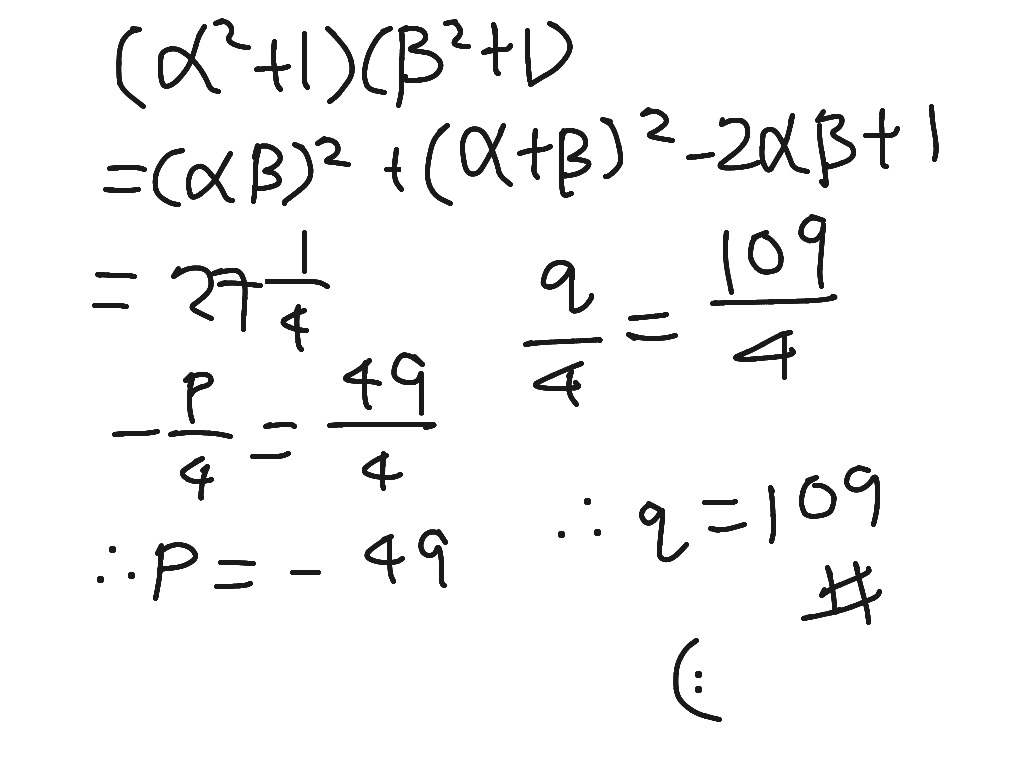 (α²+1)(β²+1)
=(αβ)² +(α+β)² -2αβ+1
= 27 1/4
q/4 = 109/4
- p/4 = 49/4
∴ q = 109
∴ P = - 49
#
(: